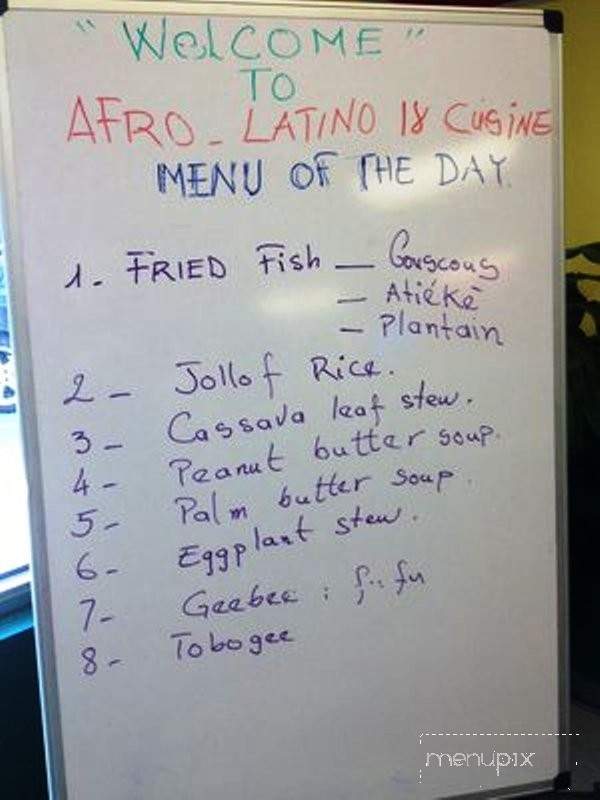 "WELCOME"
TO
AFRO - LATINO 18 CUISINE
MENU OF THE DAY.
1 - FRIED Fish — Couscous
— Atiéké
— Plantain
2 - Jollof Rice.
3 - Cassava leaf stew.
4 - Peanut butter soup.
5 - Palm butter soup.
6 - Eggplant stew.
7 - Geebee :
8 - Tobogee
menupix